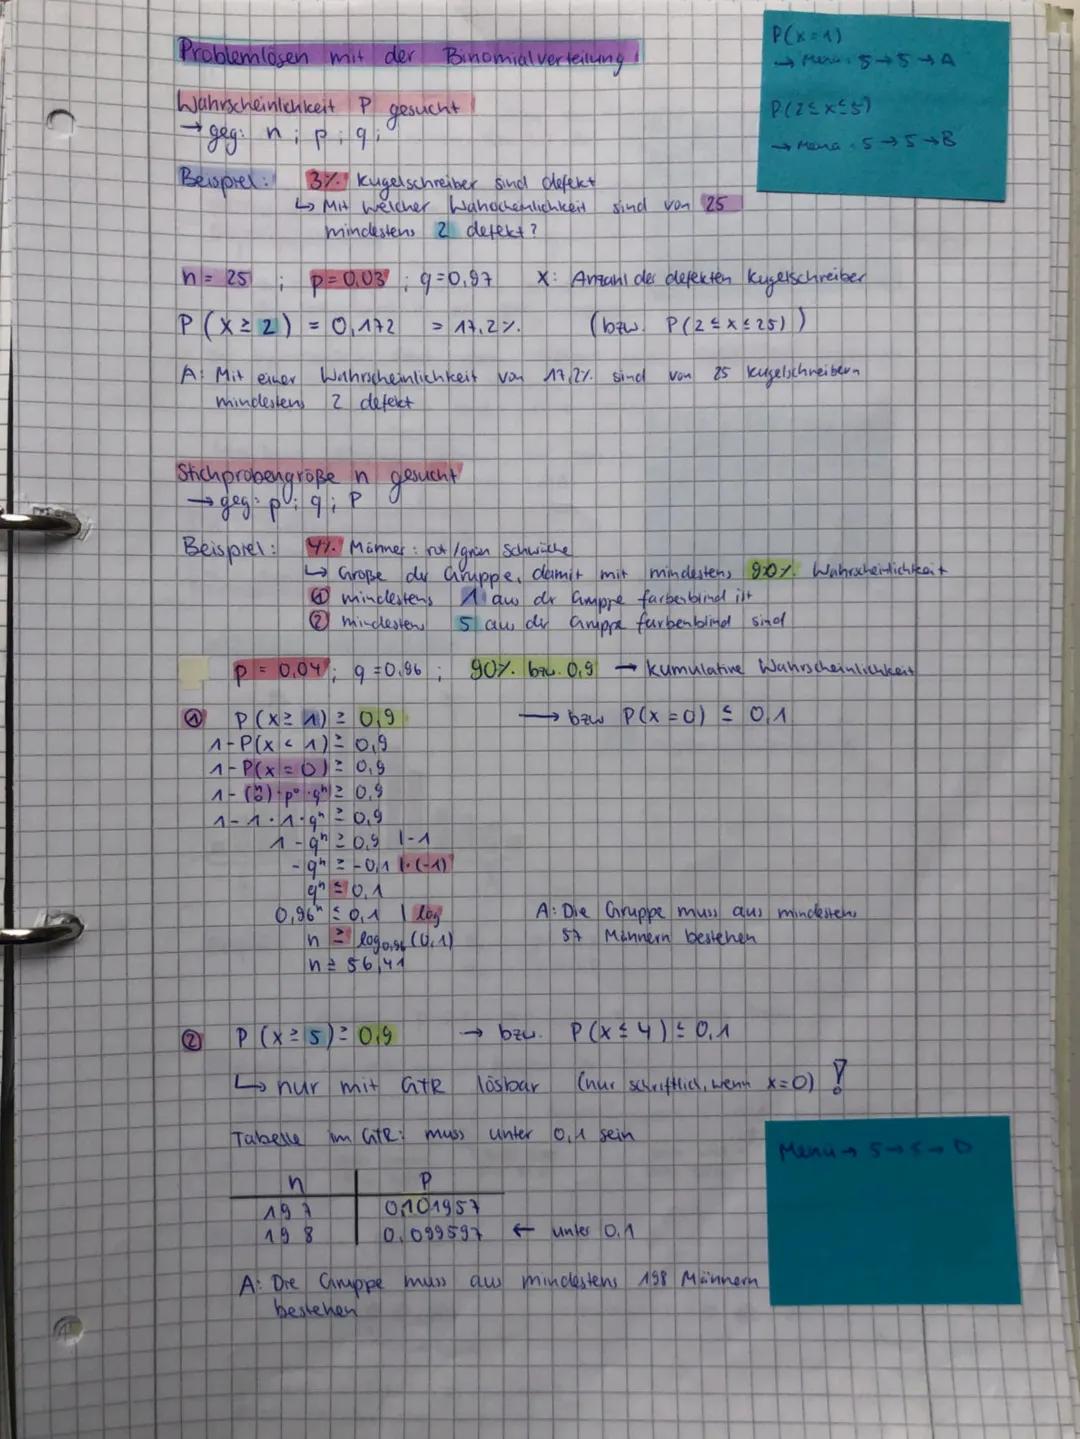 Problemlösen mit der Binomialverteilung
Wahrscheinlichkeit P gesucht
→ geg: n ; p ; q ;
Beispiel: 3% Kugelschreiber sind defekt
↳ Mit welcher Wahrscheinlichkeit sind von 25
mindestens 2 defekt?
n = 25 ; p = 0,03 ; q = 0,97 X: Anzahl der defekten Kugelschreiber
P (X ≥ 2) = 0,172 = 17,2% (bzw. P(2 ≤ x ≤ 25))
A: Mit einer Wahrscheinlichkeit von 17,2% sind von 25 Kugelschreibern
mindestens 2 defekt
Stichprobengröße n gesucht
→ geg: p ; q ; P
Beispiel: 4% Männer: rot/grün Schwäche
↳ Größe der Gruppe, damit mit mindestens 90% Wahrscheinlichkeit
① mindestens 1 aus dr Gruppe farbenblind ist
② mindestens 5 aus der Gruppe farbenblind sind
p = 0,04 ; q = 0,96 ; 90% bzw. 0,9 → kumulative Wahrscheinlichkeit
① P(x ≥ 1) ≥ 0,9 → bzw P(x = 0) ≤ 0,1
1 - P(x < 1) ≥ 0,9
1 - P(x = 0) ≥ 0,9
1 - (n 0) · p⁰ · qⁿ ≥ 0,9
1 - 1 · 1 · qⁿ ≥ 0,9
1 - qⁿ ≥ 0,9 | -1
- qⁿ ≥ -0,1 | · (-1)
qⁿ ≤ 0,1
0,96ⁿ ≤ 0,1 | log
n ≥ log₀,₉₆ (0,1)
n ≥ 56,41
A: Die Gruppe muss aus mindestens
57 Männern bestehen
② P (x ≥ 5) ≥ 0,9 → bzw. P(x ≤ 4) ≤ 0,1
↳ nur mit GTR lösbar (nur schriftlich, wenn x=0) !
Tabelle im GTR: muss unter 0,1 sein
n | P
197 | 0,101957
198 | 0,099597 ← unter 0,1
A: Die Gruppe muss aus mindestens 198 Männern
bestehen
P(x = 1)
→ Menu: 5 → 5 → A
P(2 ≤ x ≤ 5)
→ Menu: 5 → 5 → B
Menu → 5 → 5 → D